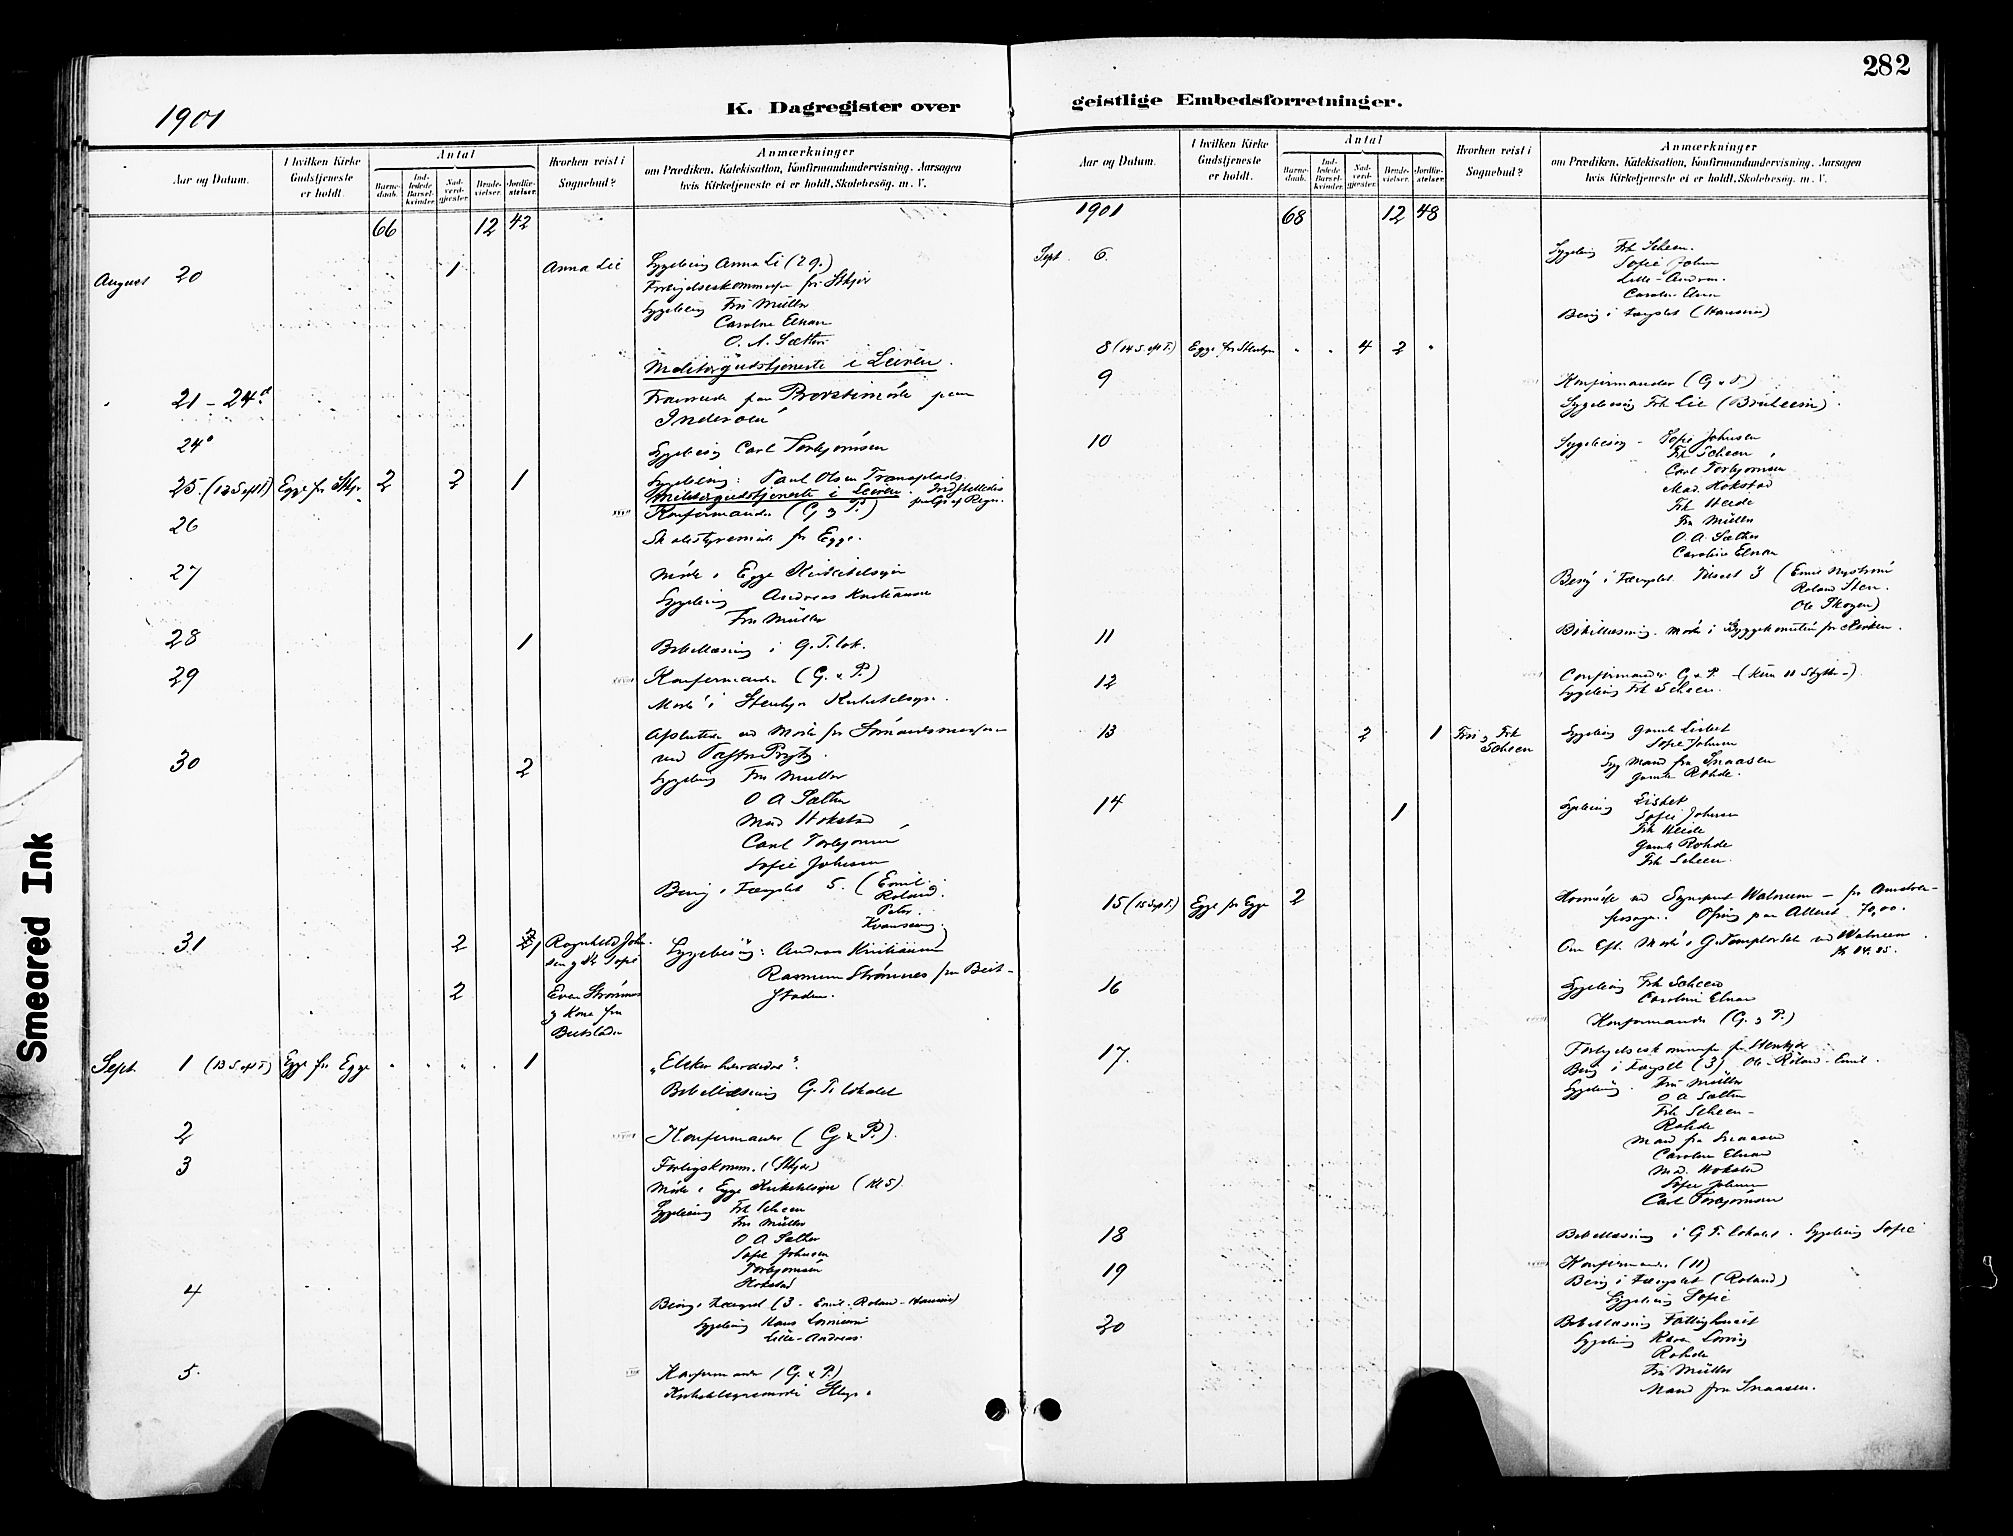 282
1901
K. Dagregister over geistlige Embedsforretninger.
Aar og Datum.
I hvilken Kirke Gudstjeneste er holdt.
Antal
Barnedaab.
Indledede Barselkvinder.
Nadverdgjester.
Brudevielser.
Jordfæstelser.
Hvorhen reist i Sognebud?
Anmærkninger
om Prædiken, Katekisation, Konfirmandundervisning, Aarsagen
hvis Kirketjeneste ei er holdt, Skolebesøg. m. V.
66 12 42
August 20 1 Anna Lie Sygebesøg Anna Li (2 g.)
Forligelseskommission for Stkjær
Sygebesøg Fru Müller
Caroline Elnan
O. A. Sæther
Militærgudstjeneste i Leiren.
21 - 24de Fraværende paa Provstimøde paa
Inderøen
24de Sygebesøg Carl Torbjørnsen
25. (12 S. eft T.) Egge for Stkjr 2 2 1 Sygebesøg: Paul Olsen Tranaplads
Militærgudstjeneste i Leiren. Indstilledes
paa Gr. af Regn.
26 Konfirmander (G og P.)
Skolestyremøde for Egge.
27 Møde i Egge Kirketilsyn
Sygebesøg Andreas Kristiansen
Fru Müller
28 1 Bibellæsning i G. T. lok.
29 Konfirmander (G. & P.)
Møde i Stenkjær Kirketilsyn.
Afsluttede ved Møde for Sømandsmissionen
30 2 ved Pastor
Sygebesøg Fru Müller
O A Sæther
Mad Hokstad
Carl Torbjørnsen
Sofie Johnsen
Besøg i Fængslet 5. (Emil.
Roland.
Peter.
31 2 1 Ragnhild Johnsen og Sofie
Sygebesøg: Andreas Kristiansen
Rasmus Strømnes fra Beitstaden.
2 Even Strømnes
og Kone fra
Beitstaden
Sept. 1 (13 S. eft T.) Egge for Egge " " " " 1 "Elsker hverandre".
Bibellæsning G. T. lokalet
2 Konfirmander (G & P.).
3 Forligskomm. (Stkjær)
Møde i Egge Kirketilsyn (Kl 5).
Sygebesøg Frk Scheen
Fru Müller
O A Sæther
Sofie Johnsen
Torbjørnsen
Hokstad
4 Besøg i Fængslet (3 - Emil. Roland - Hansen)
Sygebesøg Hans
Lille-Andreas.
5. Konfirmander (G. & P.)
Kirketilsynsmøde Stkjær
Aar og Datum.
I hvilken Kirke Gudstjeneste er holdt.
Antal
Barnedaab.
Indledede Barselkvinder.
Nadverdgjester.
Brudevielser.
Jordfæstelser.
Hvorhen reist i Sognebud?
Anmærkninger
om Prædiken, Katekisation, Konfirmandundervisning, Aarsagen
hvis Kirketjeneste ei er holdt, Skolebesøg. m. V.
1901 68 12 48
Sept. 6. Sygebesøg Frk Scheen.
Sofie Johnsen
Lille-Andreas.
Caroline Elnan
Besøg i Fængslet (Hansen)
8 (14 S. eft T.) Egge for Stenkjær " " 4 2 "
9 Konfirmander (G & P.)
Sygebesøg Frk Lie
10 Sygebesøg - Sofie Johnsen
Frk Scheen
Carl Torbjørnsen
Mad. Hokstad
Frk Heide
Fru Müller
O. A. Sæther
Caroline Elnan
Besøg i Fængslet. Tilsaet 3 (Emil Nystrøm
Roland Sten.
Ole Skogen)
11 Bibellæsning. Møde i Byggekomitéen for Kirken.
12 Confirmander G & P.
Sygebesøg Frk Scheen.
13 2 1 Fru og Frk
Scheen
Sygebesøg Gamle Lisbet
Sofie Johnsen
Syg Mand fra Snaasen
Gamle Rohde.
14 1 Sygebesøg Lisbet
Sofie Johnsen
Frk Heide
Gamle Rohde
Frk Scheen.
15 (15 S eft T.) Egge for Egge 2 Høimesse ved Sognepræst Walnum
Ofring paa Alteret. 70,00.
Om Eft. Møde i G. Templar lok. ved Walnum.
16 Sygebesøg Frk Scheen
Caroline Elnan
Konfirmander (G. og P.)
17. Forligelseskommission for Stenkjær
Besøg i Fængslet (3) Ole - Roland - Emil.
Sygebesøg. Fru Müller
O A Sæther
Frk Scheen -
Rohde
Mand fra Snaasen
Caroline Elnan
Mad. Hokstad
Sofie Johnsen
Carl Torbjørnsen
18 Bibellæsning i G. T. lokalet. Sygebesøg Sofie
19 Konfirmander (11)
Besøg i Fængslet (Roland)
Sygebesøg Sofie
20 Bibellæsning Fattighuset
Sygebesøg Karen
Rohde
Fru Müller
Mand fra Snaasen.
Smeared Ink